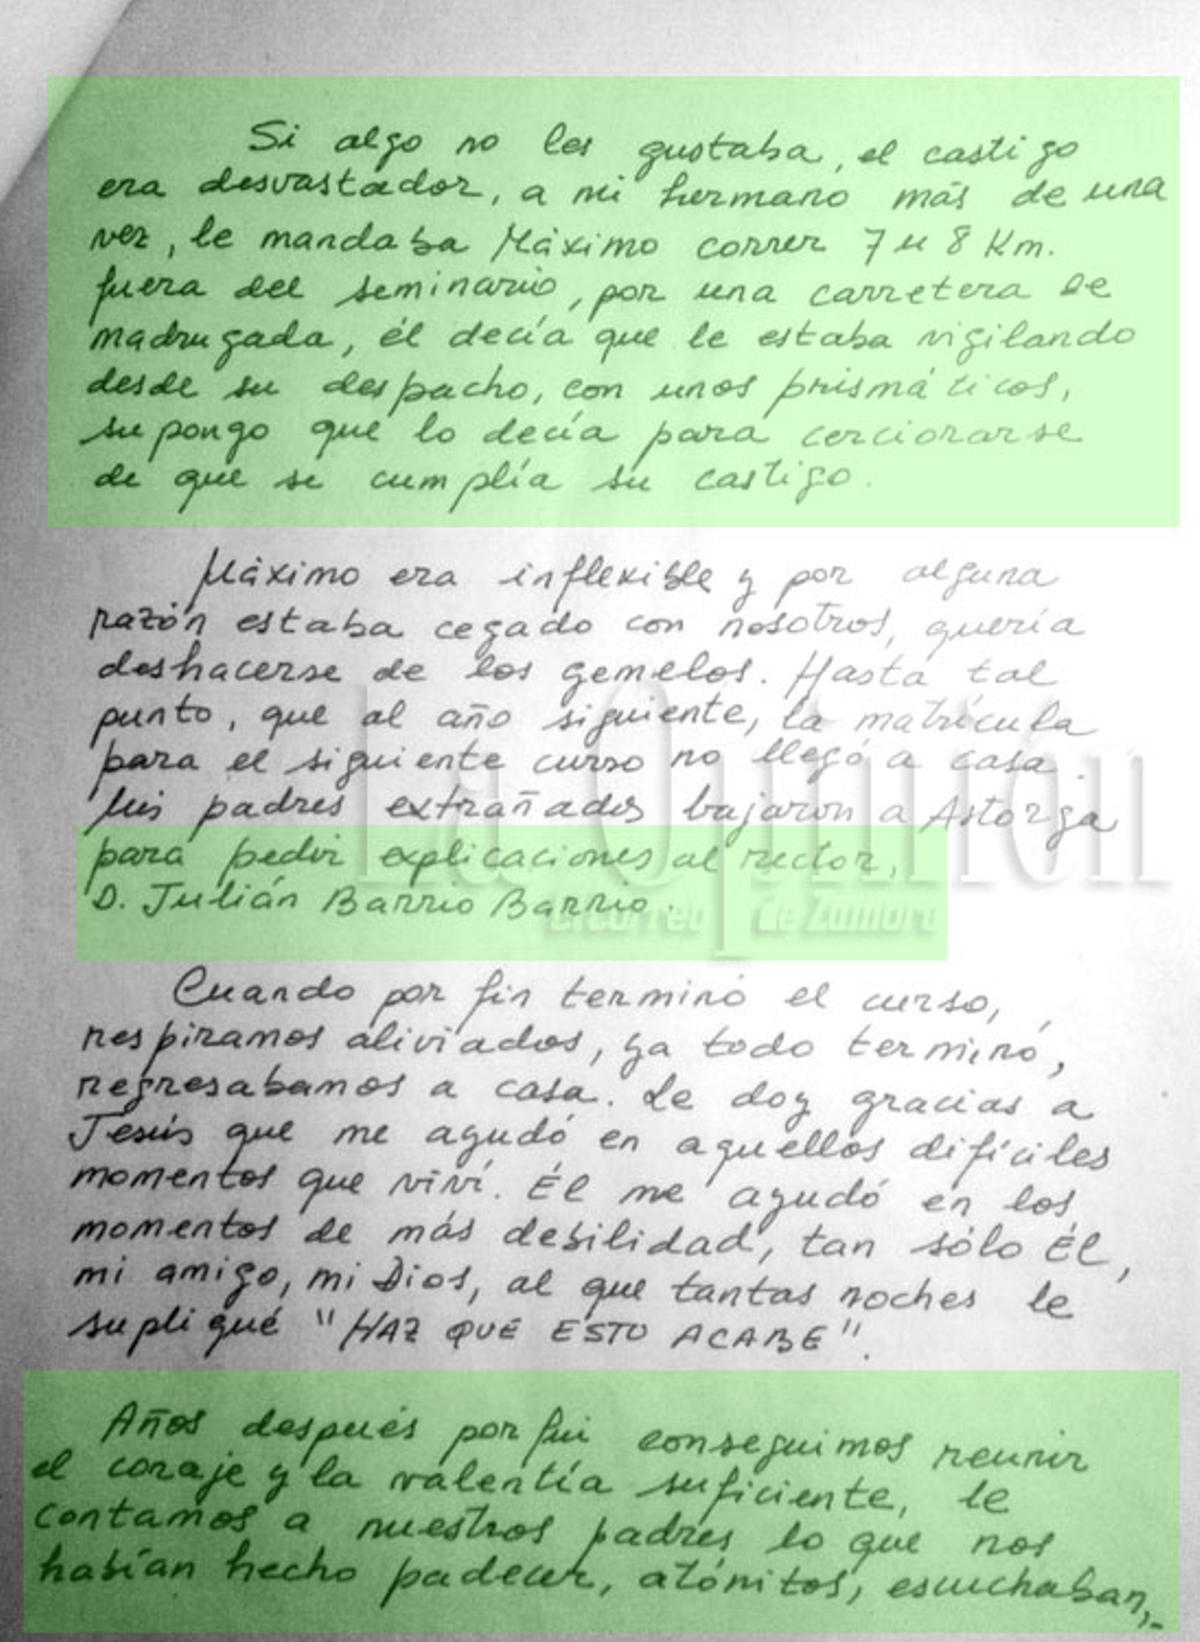 Si algo no les gustaba, el castigo
era desvastador, a mi hermano más de una
vez, le mandaba Máximo correr 7 u 8 Km.
fuera del seminario, por una carretera de
madrugada, él decía que le estaba vigilando
desde su despacho, con unos prismáticos,
supongo que lo decía para cerciorarse
de que se cumplía su castigo.
Máximo era inflexible y por alguna
razón estaba cegado con nosotros, quería
deshacerse de los gemelos. Hasta tal
punto, que al año siguiente, la matrícula
para el siguiente curso no llegó a casa.
Mis padres extrañados bajaron a Astorga
para pedir explicaciones al rector,
D. Julián Barrio Barrio.
La Opinión
El Correo de Zamora
Cuando por fin terminó el curso,
respiramos aliviados, ya todo terminó,
regresabamos a casa. Le doy gracias a
Jesús que me ayudó en aquellos difíciles
momentos que viví. Él me ayudó en los
momentos de más debilidad, tan sólo Él,
mi amigo, mi Dios, al que tantas noches le
supliqué "HAZ QUE ESTO ACABE".
Años después por fin conseguimos reunir
el coraje y la valentía suficiente, le
contamos a nuestros padres lo que nos
habían hecho padecer, atónitos, escuchaban,-